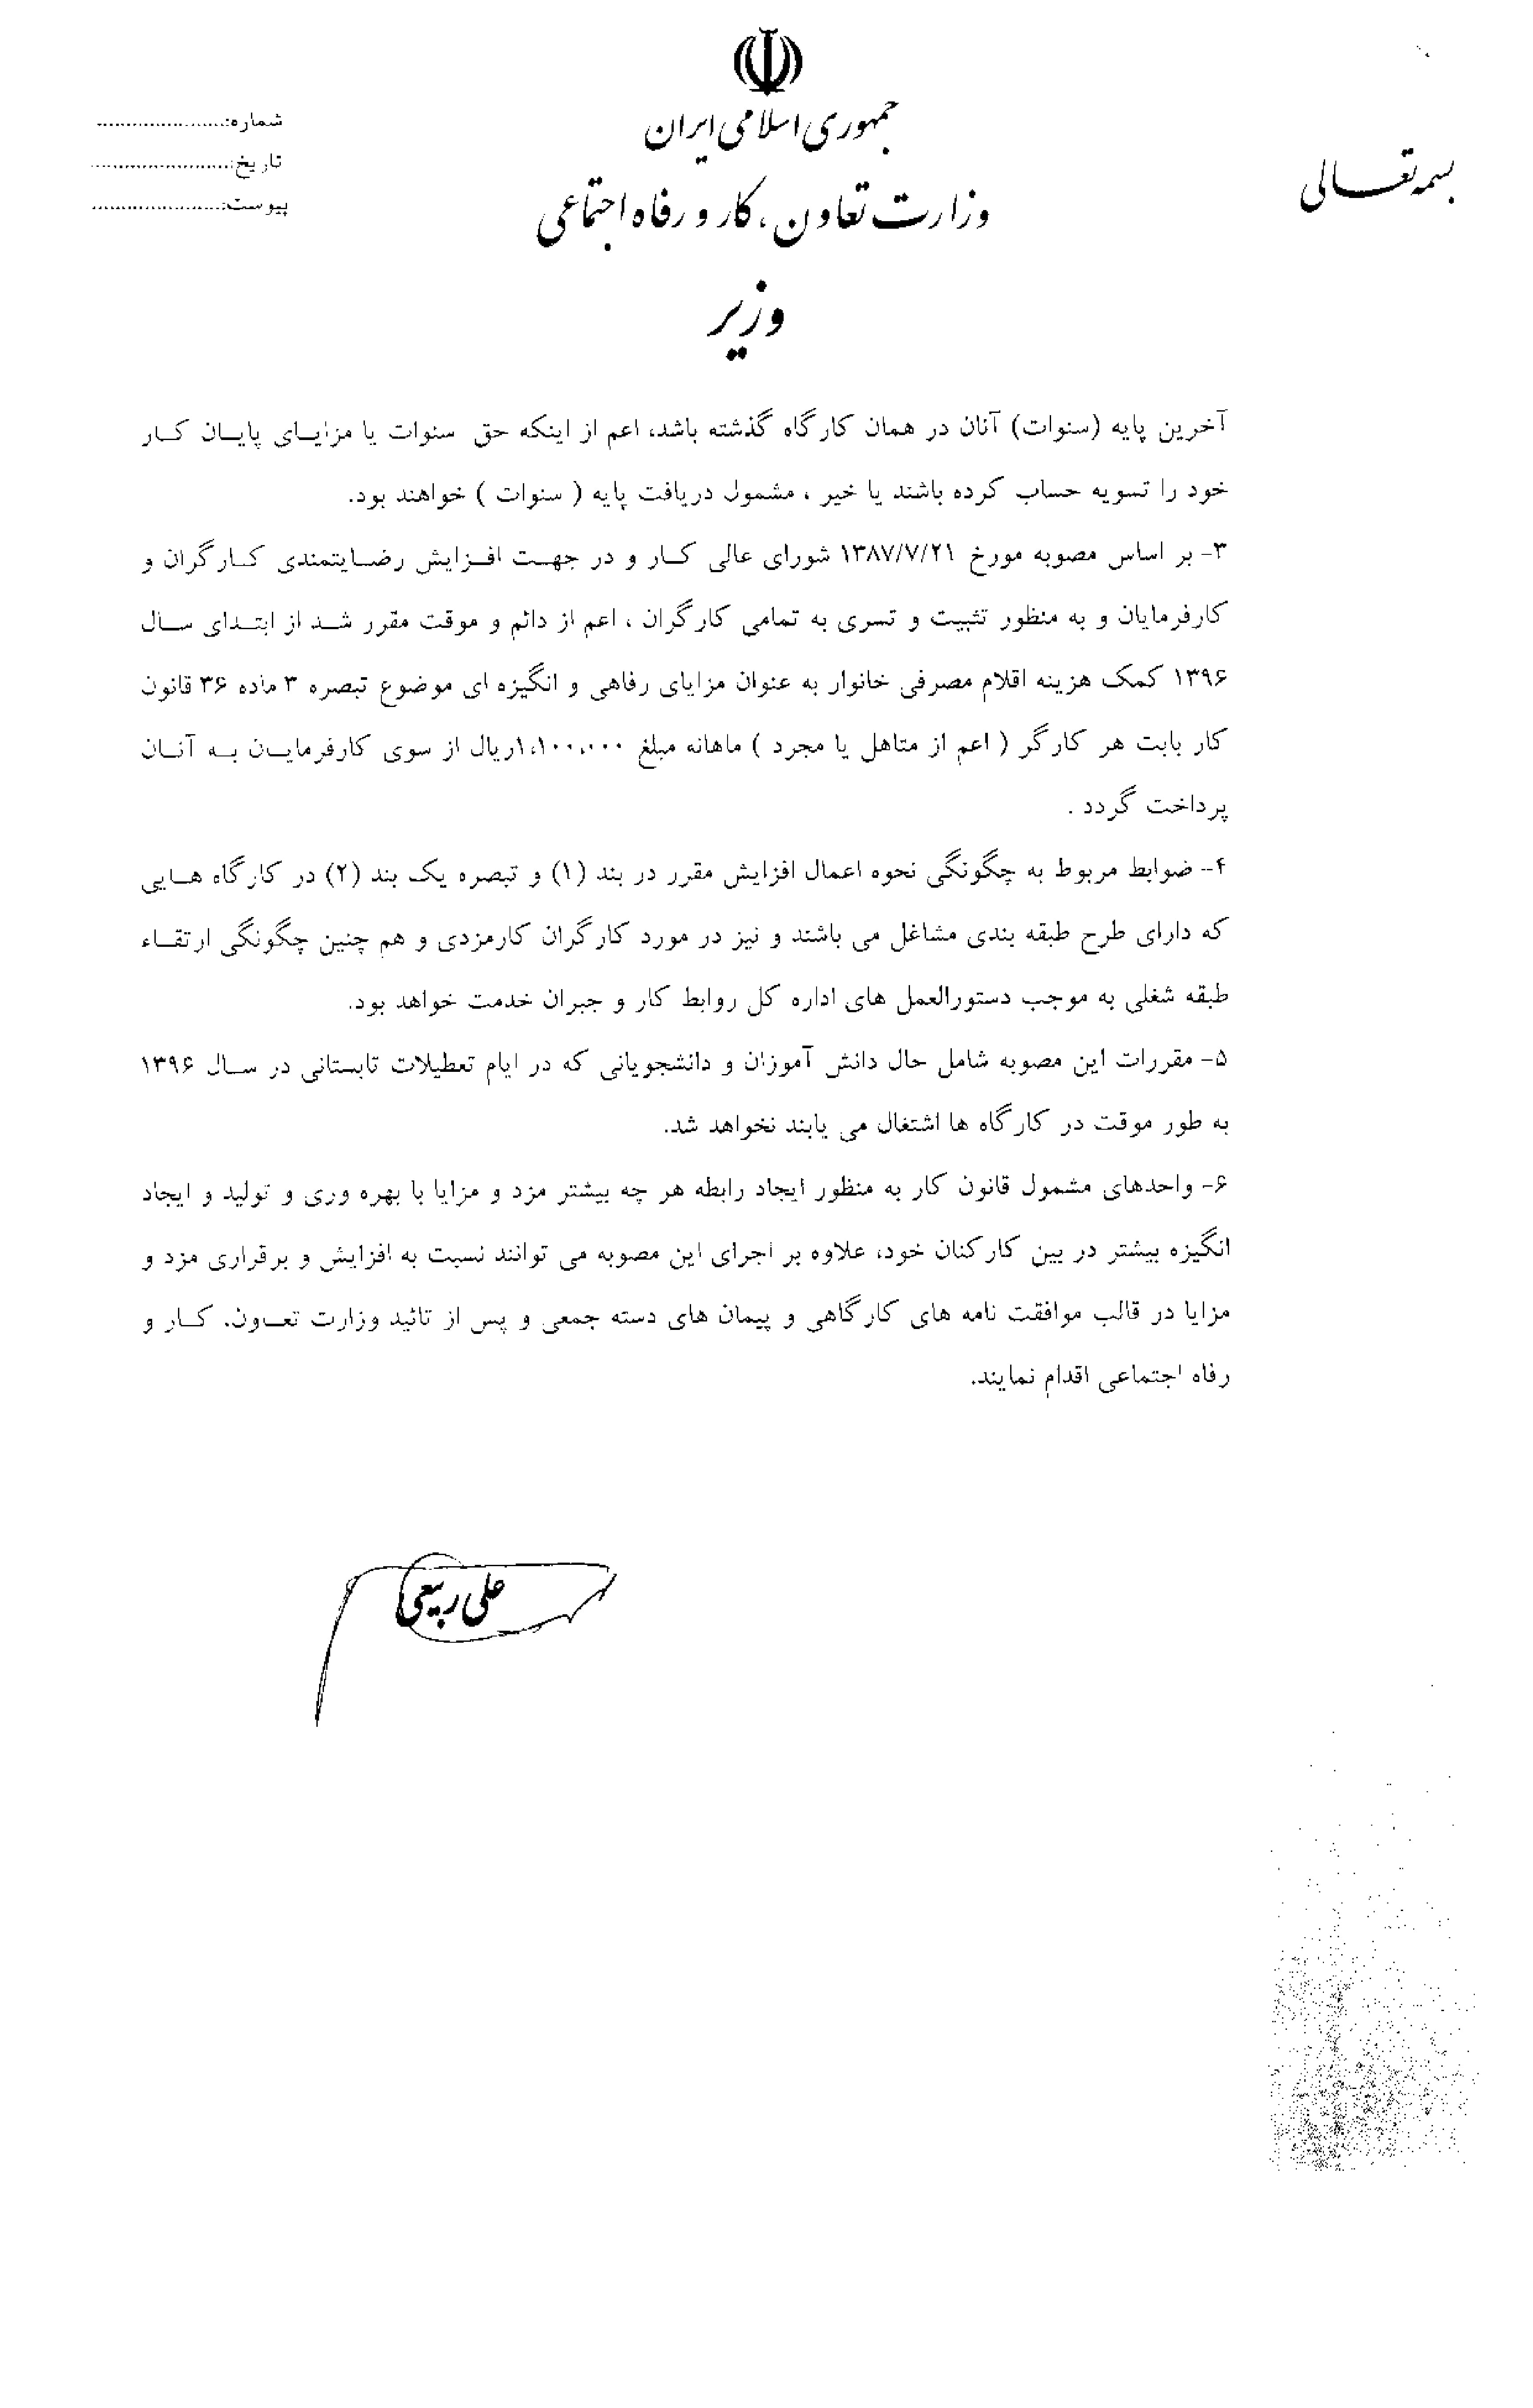 بسمه تعالی
جمهوری اسلامی ایران
وزارت تعاون، کار و رفاه اجتماعی
وزیر
شماره:......................
تاریخ:........................
پیوست:......................
آخرین پایه (سنوات) آنان در همان کارگاه گذشته باشد، اعم از اینکه حق سنوات یا مزایای پایان کار
خود را تسویه حساب کرده باشند یا خیر ، مشمول دریافت پایه ( سنوات ) خواهند بود.
۳- بر اساس مصوبه مورخ ۱۳۸۷/۷/۲۱ شورای عالی کار و در جهت افزایش رضایتمندی کارگران و
کارفرمایان و به منظور تثبیت و تسری به تمامی کارگران ، اعم از دائم و موقت مقرر شد از ابتدای سال
۱۳۹۶ کمک هزینه اقلام مصرفی خانوار به عنوان مزایای رفاهی و انگیزه ای موضوع تبصره ۳ ماده ۳۶ قانون
کار بابت هر کارگر ( اعم از متاهل یا مجرد ) ماهانه مبلغ ۱،۱۰۰،۰۰۰ریال از سوی کارفرمایان به آنان
پرداخت گردد .
۴- ضوابط مربوط به چگونگی نحوه اعمال افزایش مقرر در بند (۱) و تبصره یک بند (۲) در کارگاه هایی
که دارای طرح طبقه بندی مشاغل می باشند و نیز در مورد کارگران کارمزدی و هم چنین چگونگی ارتقاء
طبقه شغلی به موجب دستورالعمل های اداره کل روابط کار و جبران خدمت خواهد بود.
۵- مقررات این مصوبه شامل حال دانش آموزان و دانشجویانی که در ایام تعطیلات تابستانی در سال ۱۳۹۶
به طور موقت در کارگاه ها اشتغال می یابند نخواهد شد.
۶- واحدهای مشمول قانون کار به منظور ایجاد رابطه هر چه بیشتر مزد و مزایا با بهره وری و تولید و ایجاد
انگیزه بیشتر در بین کارکنان خود، علاوه بر اجرای این مصوبه می توانند نسبت به افزایش و برقراری مزد و
مزایا در قالب موافقت نامه های کارگاهی و پیمان های دسته جمعی و پس از تائید وزارت تعاون، کار و
رفاه اجتماعی اقدام نمایند.
علی ربیعی